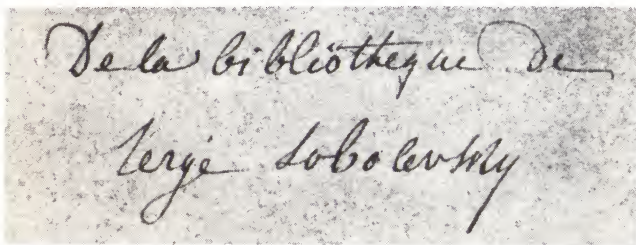 De la bibliothèque de
Serge Sobolevsky